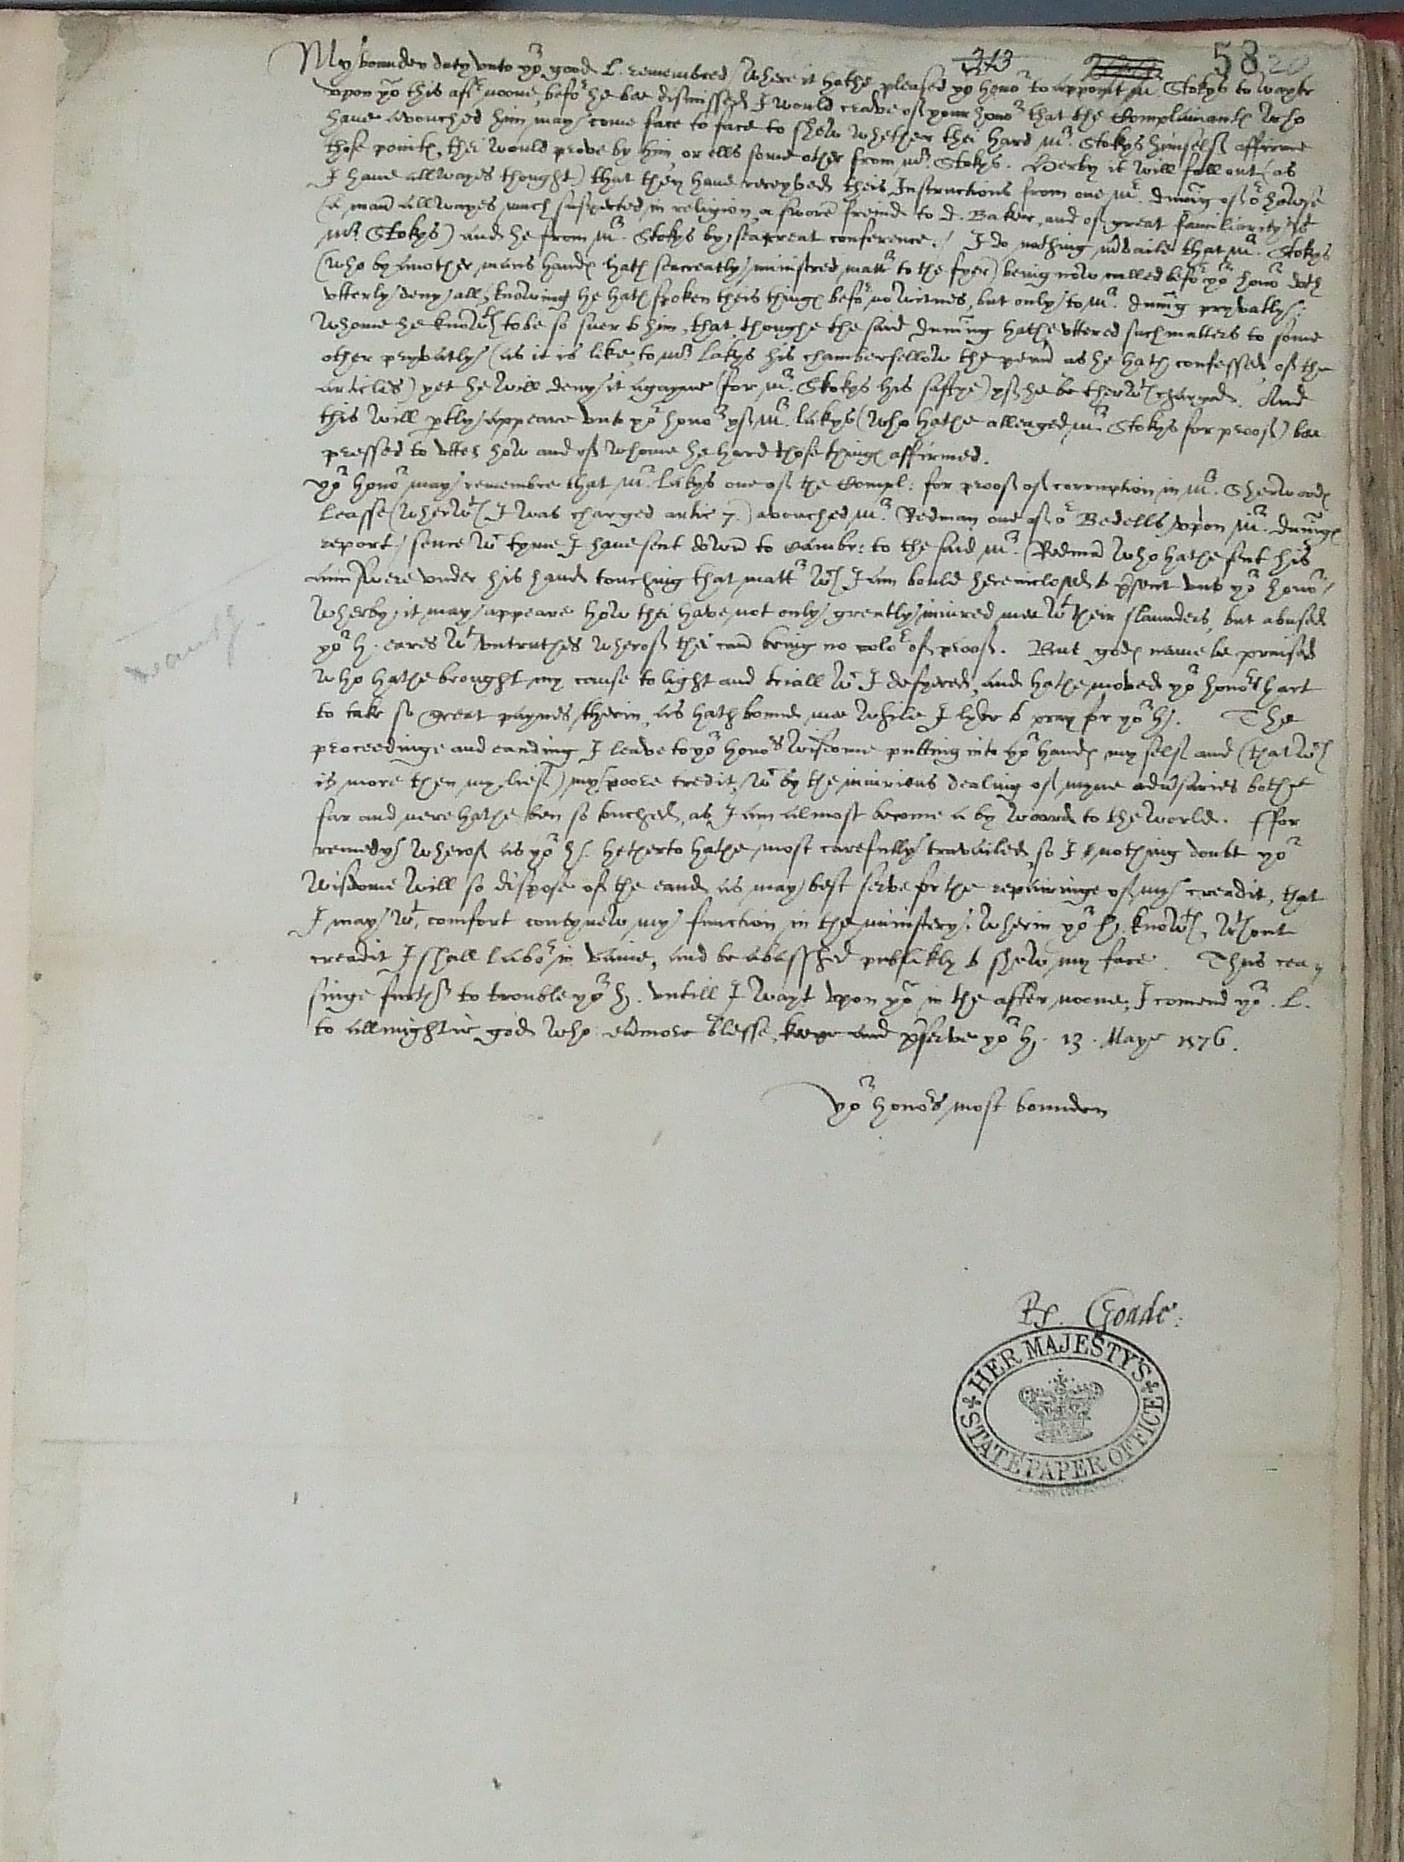 313 58 20
My bounden duty unto yor good L. remembred / where it hathe pleased yor honor to appoint Mr. Stokys to wayte
upon yow this afternoone, before he bee dismissed I would crave of your honor that the Complainants who
have avouched him may come face to face to shew whether thei hard Mr. Stokys himselfe affirme
those points, thei would prove by him, or ells some other from Mr. Stokys. Herby it will fall out (as
I have allwayes thought) that they have receyved theis Instructions from one Mr. Duning of or howse
(a man allwayes much suspected in religion, a sworne freind to d. Baker, and of great familiarity wt
Mr. Stokys) and he from Mr. Stokys by seacreat conference. / I do nothing mrvaile that Mr. Stokys
(who by another mans hands hath seacreatly ministred mattr to the fyer) being now called before yor honor doth
utterly deny all, knowing he hath spoken theis things before no witnes, but only to Mr. Duning pryvatly:
whome he knoweth to be so suer to him, that thoughe the said Duning hathe uttered such matters to some
other pryvatly (as it is like to Mr. Lakys his chamberfellow the penn as he hath confessed of the
articles) yet he will deny it agayne (for Mr. Stokys his saftye) yf he be therwth charged. And
this will ptly appeare unto yor honor yf Mr. Lakys (who hathe alleaged Mr. Stokys for proof) bee
pressed to utter how and of whome he hard those things affirmed.
yor honor may remembre that Mr. Lakys one of the Compl: for proof of corruption in Mr. Sherwoods
Leasse (wherwth I was charged artic 7.) avouched Mr. Redman one of or Bedells upon Mr. Dunings
report / sence wch tyme I have sent down to Cambr: to the said Mr. Redman who hathe sent his
aunswere under his hand touching that mattr wch I am bould hereinclosed to psent unto yor honor /
wherby it may appeare how thei have not only greatly iniured mee wt their slaunders, but abused
yor h. eares wt untruthes wherof thei can bring no color of proof. But gods name be praised
who hathe brought my cause to light and triall wch I desyered, and hathe moved yor honors hart
to take so great paynes therin, as hath bound mee while I lyve to pray for yor h. The
proceedinge and eanding I leave to yor honors wisdome putting into yor hands my self and (that wch
is more then my lief) my poore credit, wch by the iniurious dealing of myne adversaries bothe
far and nere hathe ben so touched, as I am almost become a by woord to the world. ffor
remedy wherof as yor h. hetherto hathe most carefully travailed, so I nothing doubt yor
wisdome will so dispose of the eand as may best serve for the repairinge of my creadit, that
I may wt comfort contynew my function in the ministery: wherin yor h. knoweth, wthout
creadit I shall labor in vaine, and be abasshed publikly to shew my face. Thus cea-
singe further to trouble yor h. untill I wayt upon yow in the after noone, I comend yor. L.
to allmightie god who evermore blesse, keepe and pserve yor h. 13. Maye 1576.
yor honors most bounden
Ro. Goade.
HER MAJESTY'S STATE PAPER OFFICE